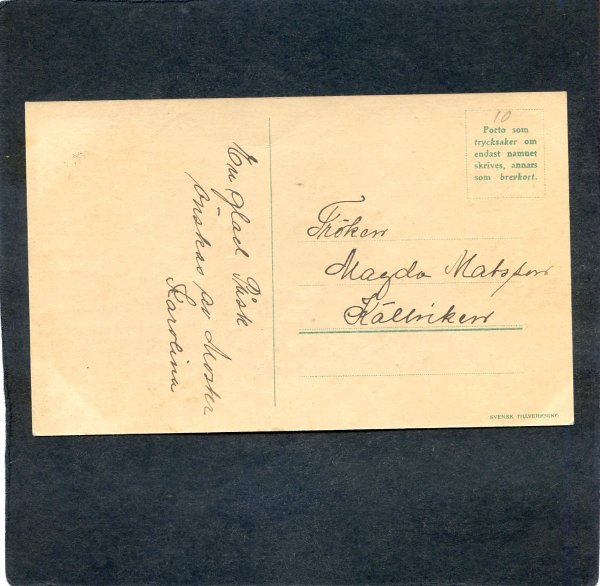 En glad Påsk
önskas av Moster
Karolina
10
Porto som
trycksaker om
endast namnet
skrives, annars
som brevkort.
Fröken
Magda Matsson
Källviken
SVENSK TILLVERKNING